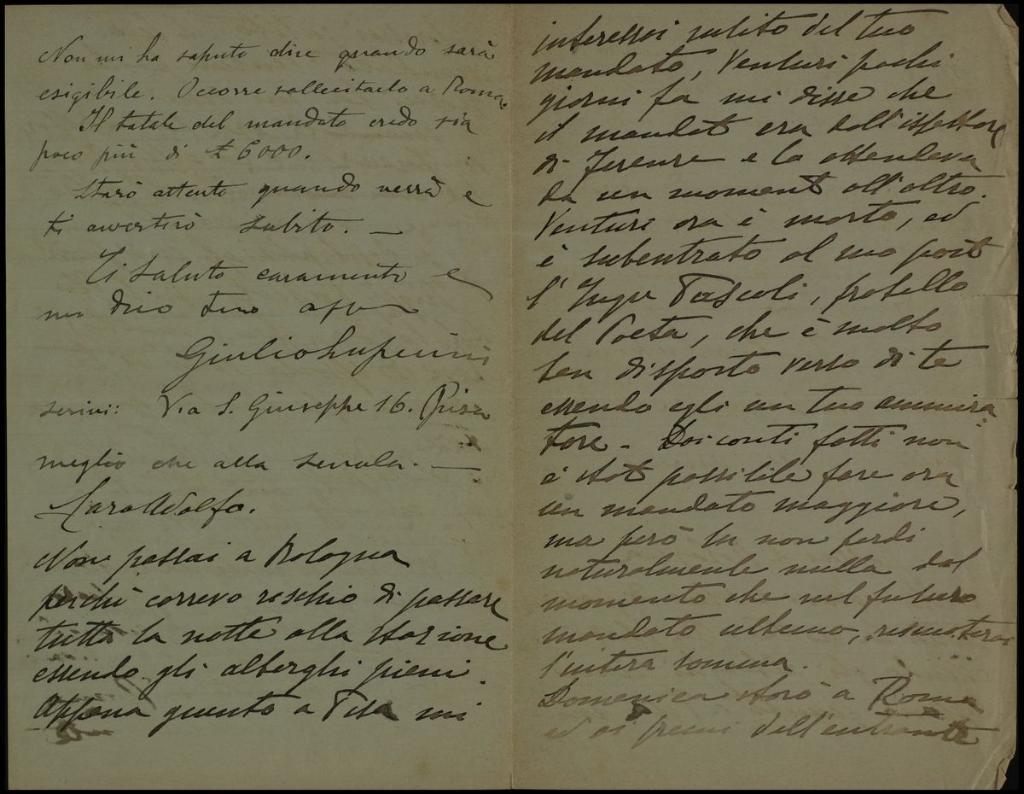 Non mi ha saputo dire quando sarà
esigibile. Occorre sollecitarlo a Roma.
Il totale del mandato credo sia
poco più di £ 6000.
Starò attento quando verrà e
ti avvertirò subito. —
Ti saluto caramente e
mi dico tuo aff
Giulio Luperini
scrivi: Via S. Giuseppe 16. Pisa
meglio che alla scuola. —
Caro Adolfo.
Non passai a Bologna
perchè correvo rischio di passare
tutta la notte alla stazione
essendo gli alberghi pieni.
Appena giunto a Pisa mi
interessai subito del tuo
mandato, Venturi pochi
giorni fa mi disse che
il mandato era dall'ispettore
di Firenze e lo attendeva
da un momento all'altro.
Venturi ora è morto, ed
è subentrato al suo posto
l'Ingre Pascoli, fratello
del Poeta, che è molto
ben disposto verso di te
essendo egli un tuo ammira
tore. Dai conti fatti non
è stato possibile fare ora
un mandato maggiore,
ma però tu non perdi
naturalmente nulla dal
momento che nel futuro
mandato ultimo,
l'intera somma.
Domenica starò a Roma
ed ai primi dell'entrante